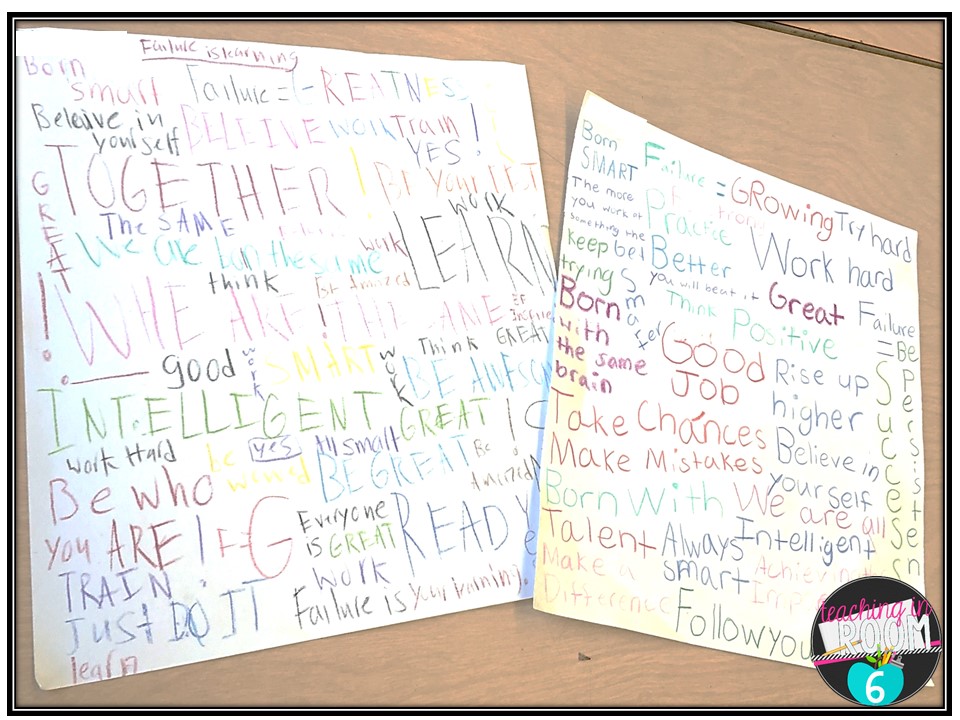 Failure is learning
Born smart Failure = GREATNESS
Beleive in yourself BELEIVE work Train YES!
TOGETHER! BE Your BEST
GREAT!
The SAME work
We are
work LEARN
think
WE ARE THE SAME
good work SMART work Think GREAT
BE AWESOME
INTELLIGENT GREAT
work Hard yes All smart
Be who BE GREAT Be Amazed
you ARE! Everyone is GREAT READY
TRAIN work
JUST DO IT Failure is your training.
learn
Born SMART Failure = GRowing Try hard
The more you work at something the better you will beat it
Practice
Work hard
keep trying Smart
Think Positive Great Failure = Success
Born with the same brain
GOOD JOB
Rise up higher
Be Persistent
Take Chances
Make Mistakes
Believe in yourself
Born With Talent
We are all Intelligent
Always smart
Make a Difference
Achieving the
Follow you
teaching in ROOM 6